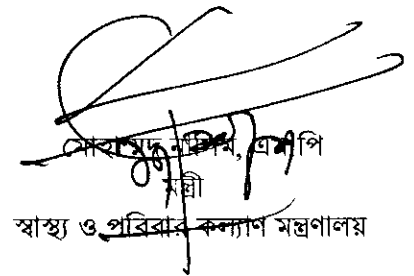 মোহাম্মদ নাসিম, এমপি
মন্ত্রী
স্বাস্থ্য ও পরিবার কল্যাণ মন্ত্রণালয়